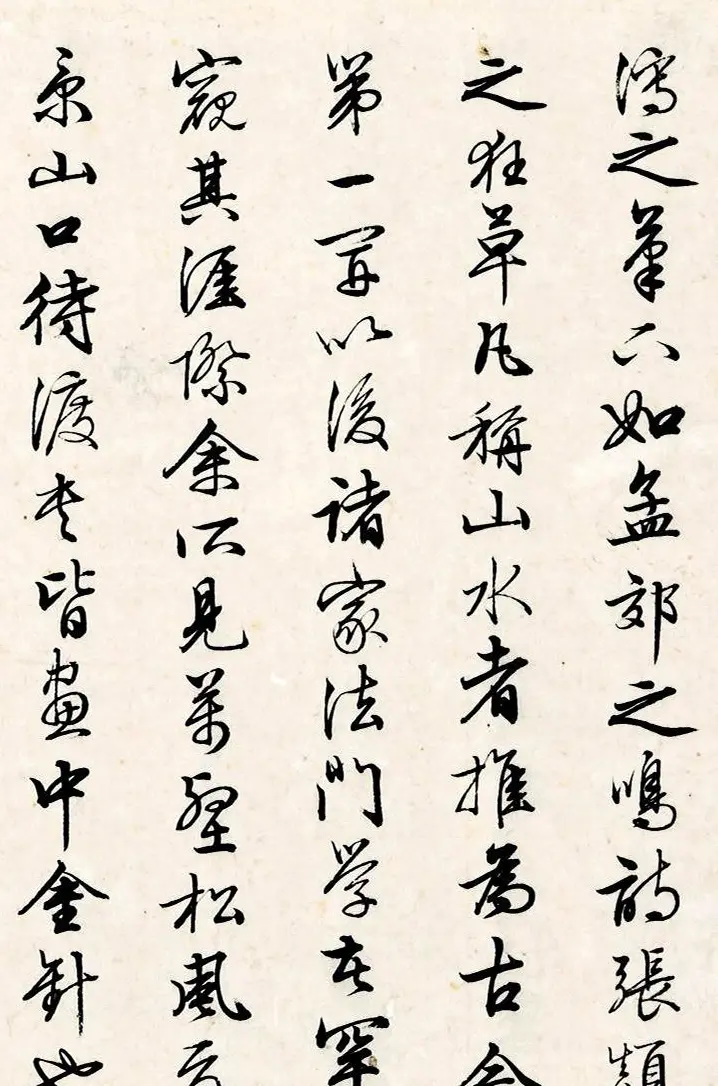 瀉之筆亦如孟郊之鳴詩張顛
之狂草凡稱山水者推為古今
第一 開以後諸家法門學者罕
窺其涯際余所見萬壑松風夏
景山口待渡卷皆畫中金針也